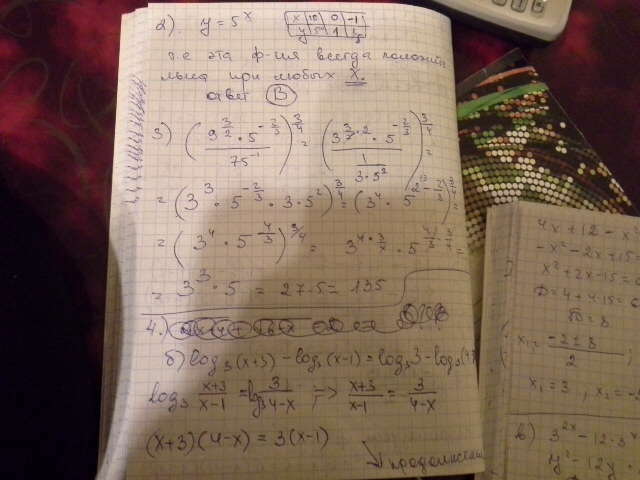 2). y = 5^x
x | 10 | 0 | -1
y | 5^10 | 1 | 1/5
т.е эта ф-ия всегда положите
льна при любых X.
ответ (B)
3) ((9^(3/2) · 5^(-2/3))/75^(-1))^(3/4) = ((3^(3/2·2) · 5^(-2/3))/(1/(3·5^2)))^(3/4) =
= (3^3 · 5^(-2/3) · 3 · 5^2)^(3/4) = (3^4 · 5^(2-2/3))^(3/4) =
= (3^4 · 5^(4/3))^(3/4) = 3^(4·3/4) · 5^(4/3·3/4) =
= 3^3 · 5 = 27·5 = 135
4.)
б) log3(x+3) - log3(x-1) = log3 3 - log3(4-x)
log3 (x+3)/(x-1) = log3 3/(4-x) => (x+3)/(x-1) = 3/(4-x)
(x+3)(4-x) = 3(x-1)
продолжение
4x + 12 - x²
-x² - 2x + 15 =
x² + 2x - 15 = 0
D = 4 + 4·15 = 6
√D = 8
x1,2 = (-2 ± 8)/2
x1 = 3, x2 = -5
в) 3^(2x) - 12·3^x
y² - 12y